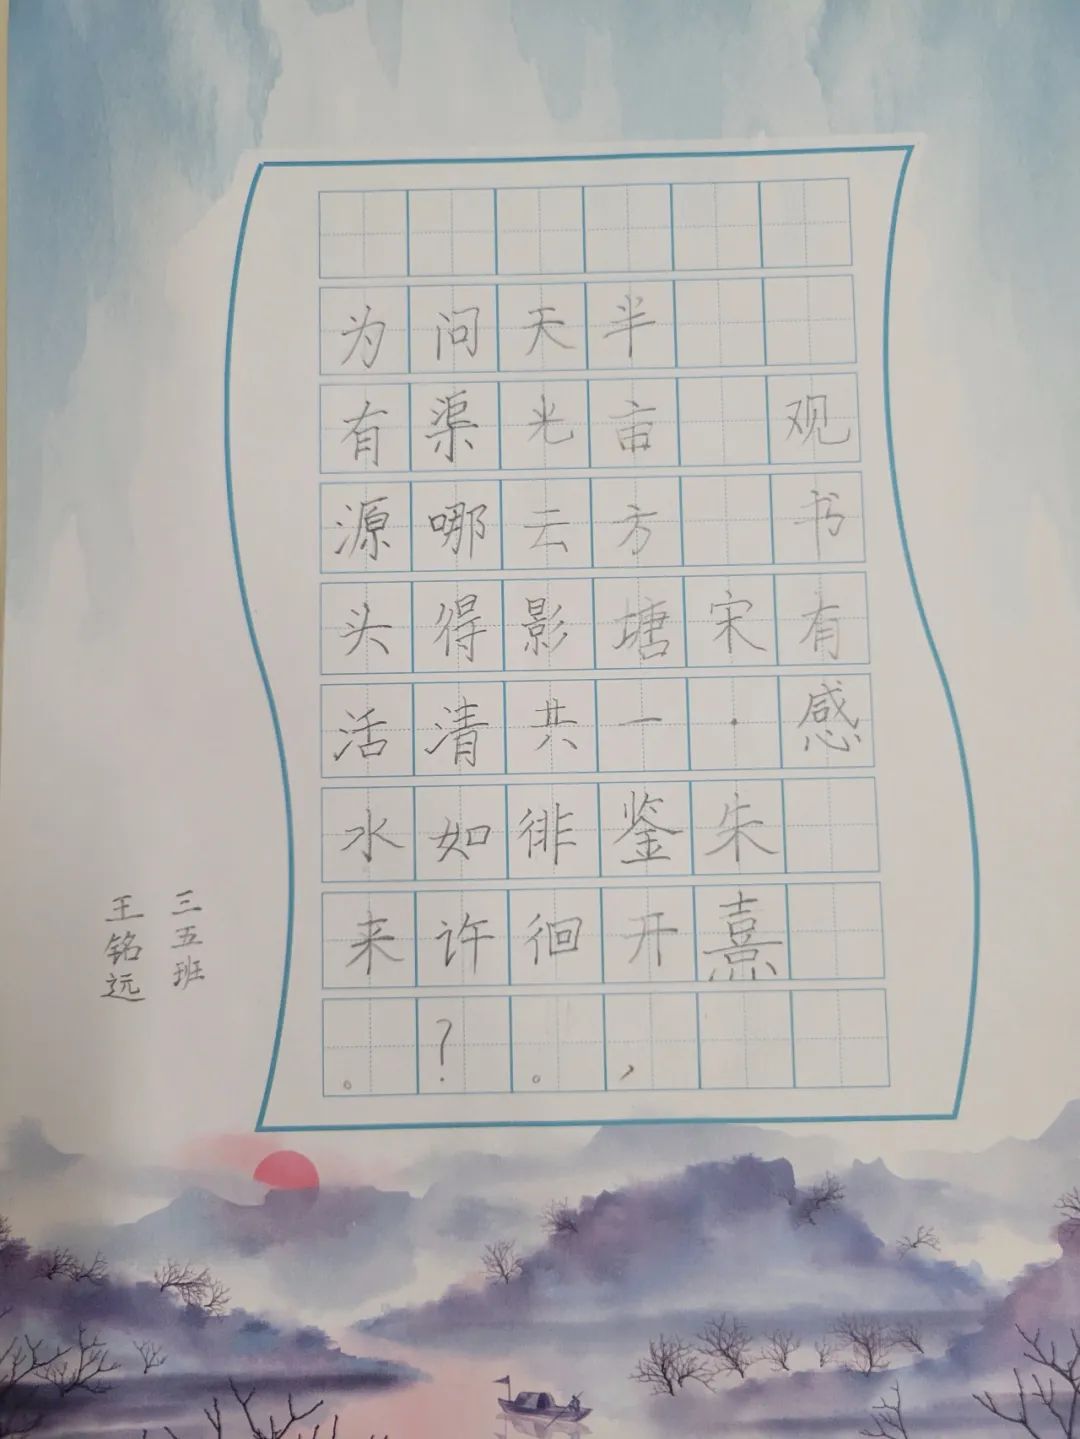 观书有感
宋·朱熹
半亩方塘一鉴开，
天光云影共徘徊。
问渠哪得清如许？
为有源头活水来。
三五班
王铭远